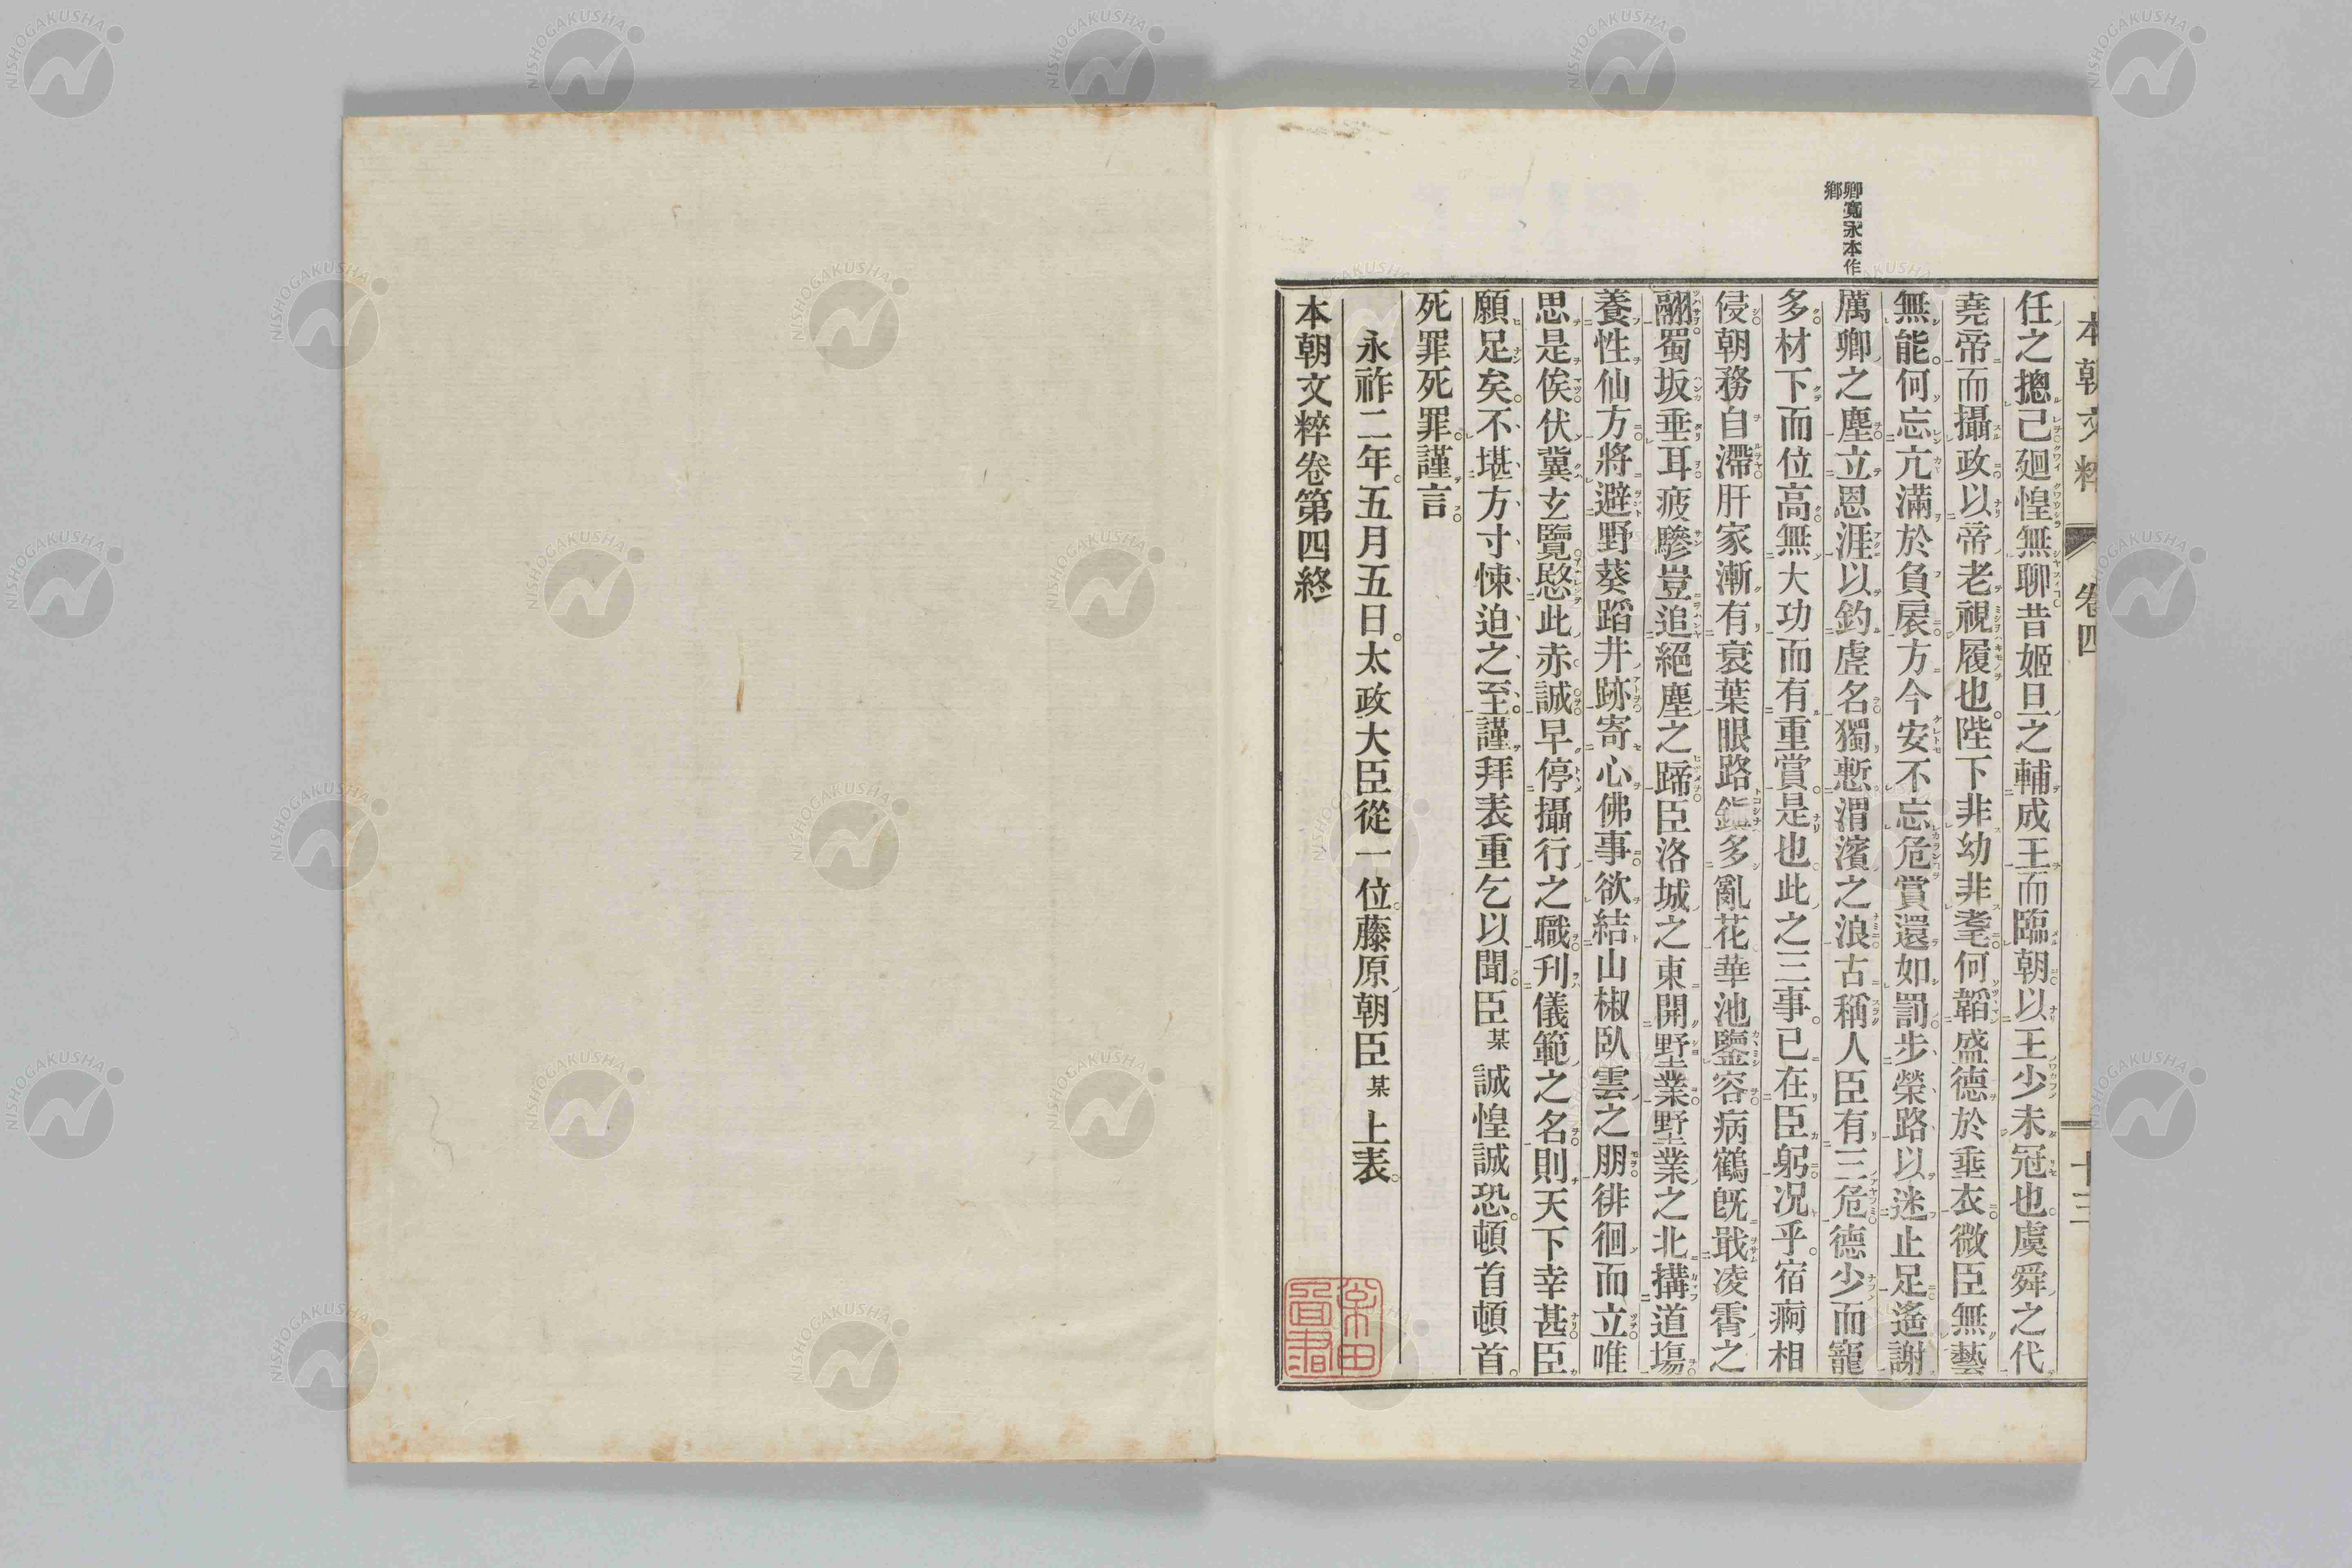 本朝文粹 卷四 十三
任之摠己廻惶無聊昔姬旦之輔成王而臨朝以王少未冠也虞舜之代
堯帝而攝政以帝老視履也。陛下非幼非耄何韜盛德於垂衣微臣無藝
無能何忘亢滿於負扆方今安不忘危賞還如罰步榮路以迷止足遙謝
厲卿之塵立恩涯以釣虛名獨慙渭濱之浪古稱人臣有三危德少而寵
多材下而位高無大功而有重賞。是也此之三事。已在臣躬况乎。宿痾相
侵朝務自滯肝家漸有衰葉眼路鎮多亂花華池鑒容病鶴旣戢凌霄之
翮蜀坂垂耳疲驂豈追絕塵之蹄臣洛城之東開野業野業之北搆道場
養性仙方將避野葵蹈井跡寄心佛事欲結山椒臥雲之朋徘徊而立唯
思是俟伏冀玄覽愍此赤誠早停攝行之職刊儀範之名則天下幸甚臣
願足矣。不堪方寸悚迫之至。謹拜表重乞以聞。臣某誠惶誠恐。頓首頓首。
死罪死罪。謹言。
永祚二年。五月五日。太政大臣從一位。藤原朝臣某上表。
本朝文粹卷第四終
卿寬永本作
鄉
NISHOGAKUSHA